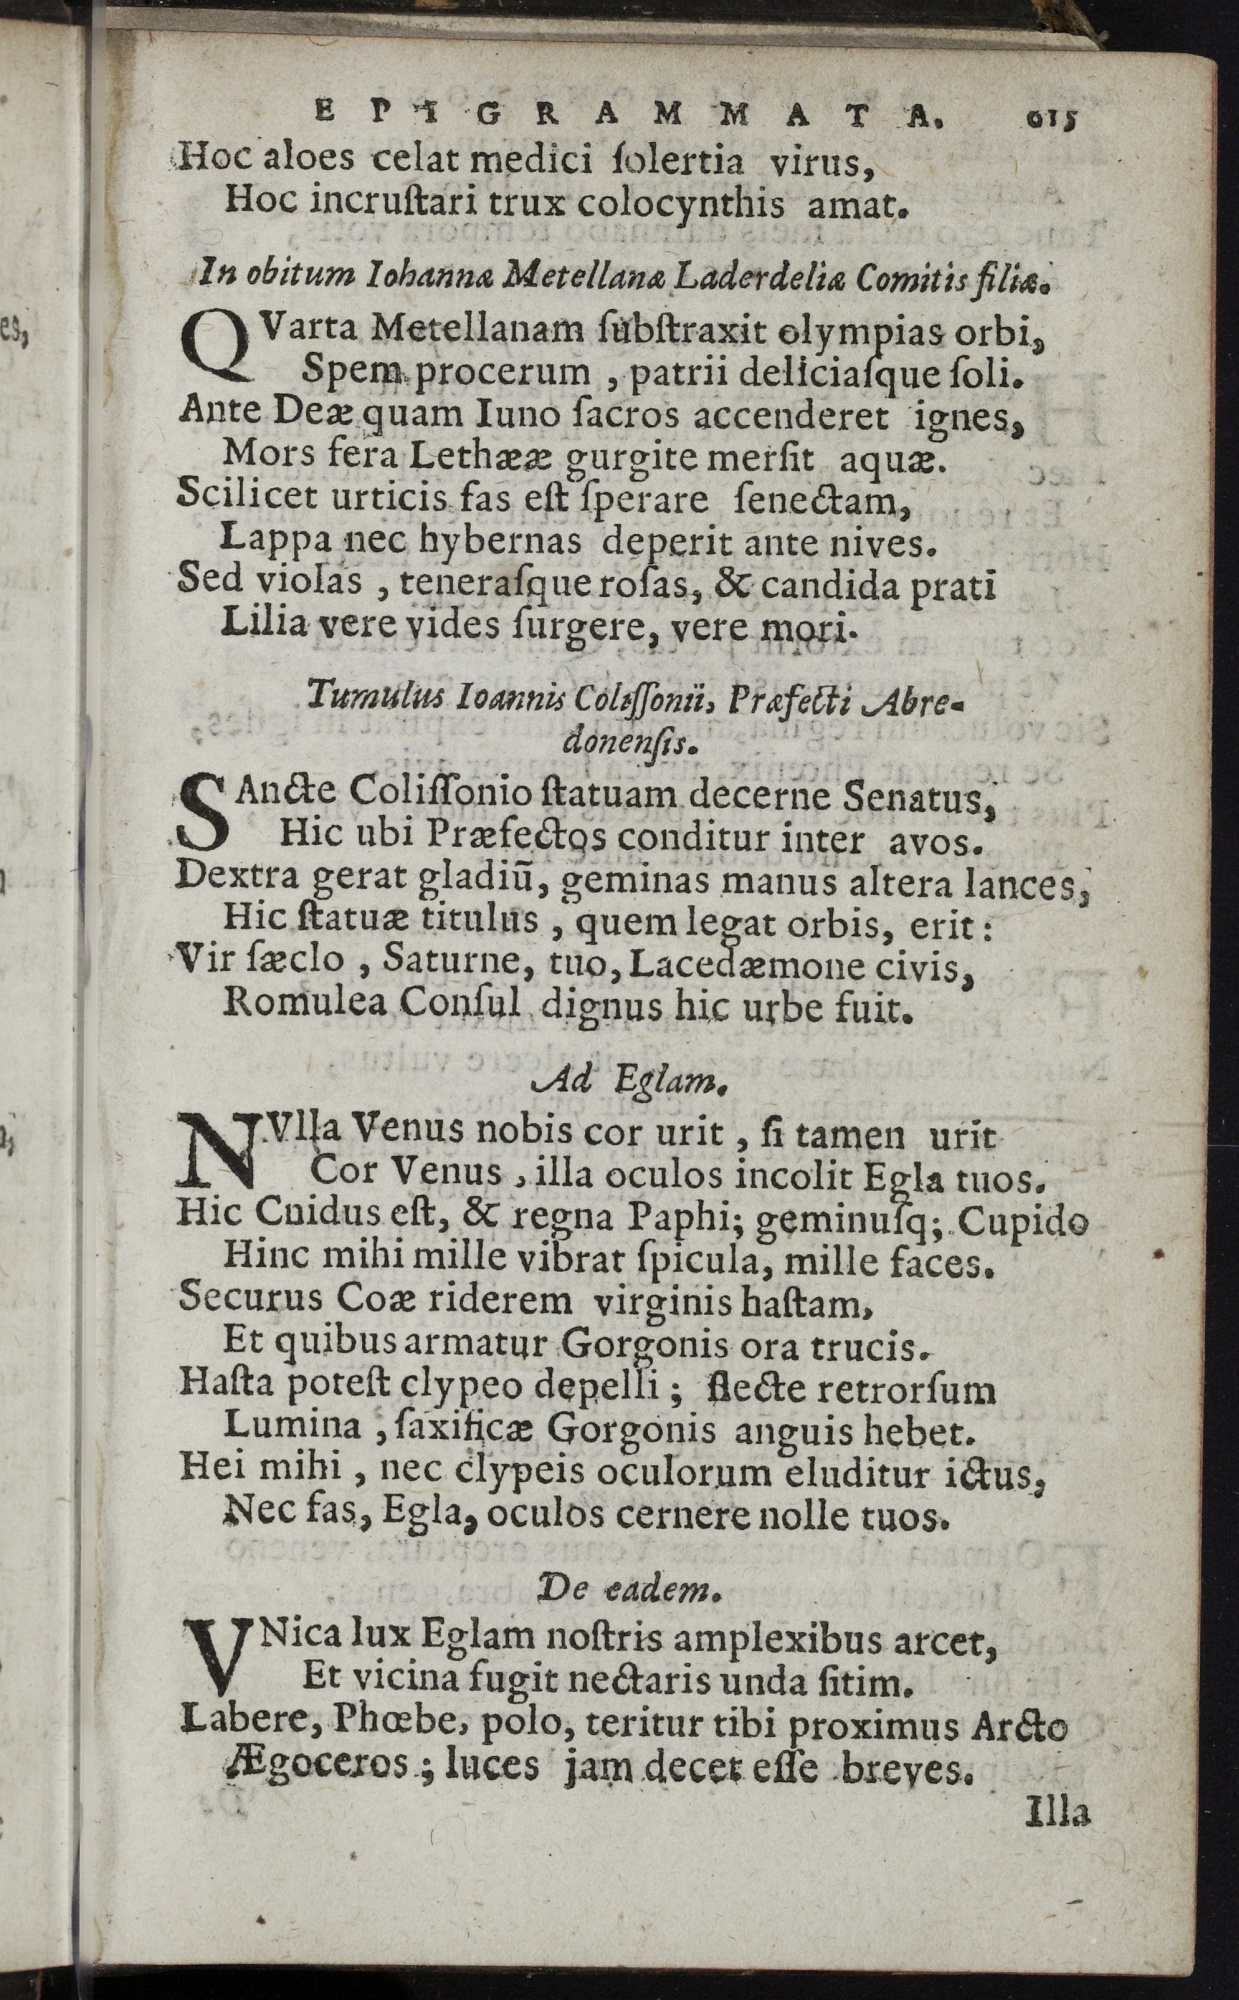 EPIGRAMMATA. 615
Hoc aloes celat medici ſolertia virus,
Hoc incruſtari trux colocynthis amat.
In obitum Iohannæ Metellanæ Laderdeliæ Comitis filiæ.
QVarta Metellanam ſubſtraxit olympias orbi,
Spem procerum, patrii deliciaſque ſoli.
Ante Deæ quam Iuno ſacros accenderet ignes,
Mors fera Lethææ gurgite merſit aquæ.
Scilicet urticis fas eſt ſperare ſenectam,
Lappa nec hybernas deperit ante nives.
Sed violas, teneraſque roſas, & candida prati
Lilia vere vides ſurgere, vere mori.
Tumulus Ioannis Coliſſonii, Præfecti Abre-
donenſis.
SAncte Coliſſonio ſtatuam decerne Senatus,
Hic ubi Præfectos conditur inter avos.
Dextra gerat gladiũ, geminas manus altera lances,
Hic ſtatuæ titulus, quem legat orbis, erit:
Vir ſæclo, Saturne, tuo, Lacedæmone civis,
Romulea Conſul dignus hic urbe fuit.
Ad Eglam.
NVlla Venus nobis cor urit, ſi tamen urit
Cor Venus, illa oculos incolit Egla tuos.
Hic Cnidus eſt, & regna Paphi; geminuſq; Cupido
Hinc mihi mille vibrat ſpicula, mille faces.
Securus Coæ riderem virginis haſtam,
Et quibus armatur Gorgonis ora trucis.
Haſta poteſt clypeo depelli; flecte retrorſum
Lumina, ſaxificæ Gorgonis anguis hebet.
Hei mihi, nec clypeis oculorum eluditur ictus,
Nec fas, Egla, oculos cernere nolle tuos.
De eadem.
VNica lux Eglam noſtris amplexibus arcet,
Et vicina fugit nectaris unda ſitim.
Labere, Phœbe, polo, teritur tibi proximus Arcto
Ægoceros; luces jam decet eſſe breves.
Illa